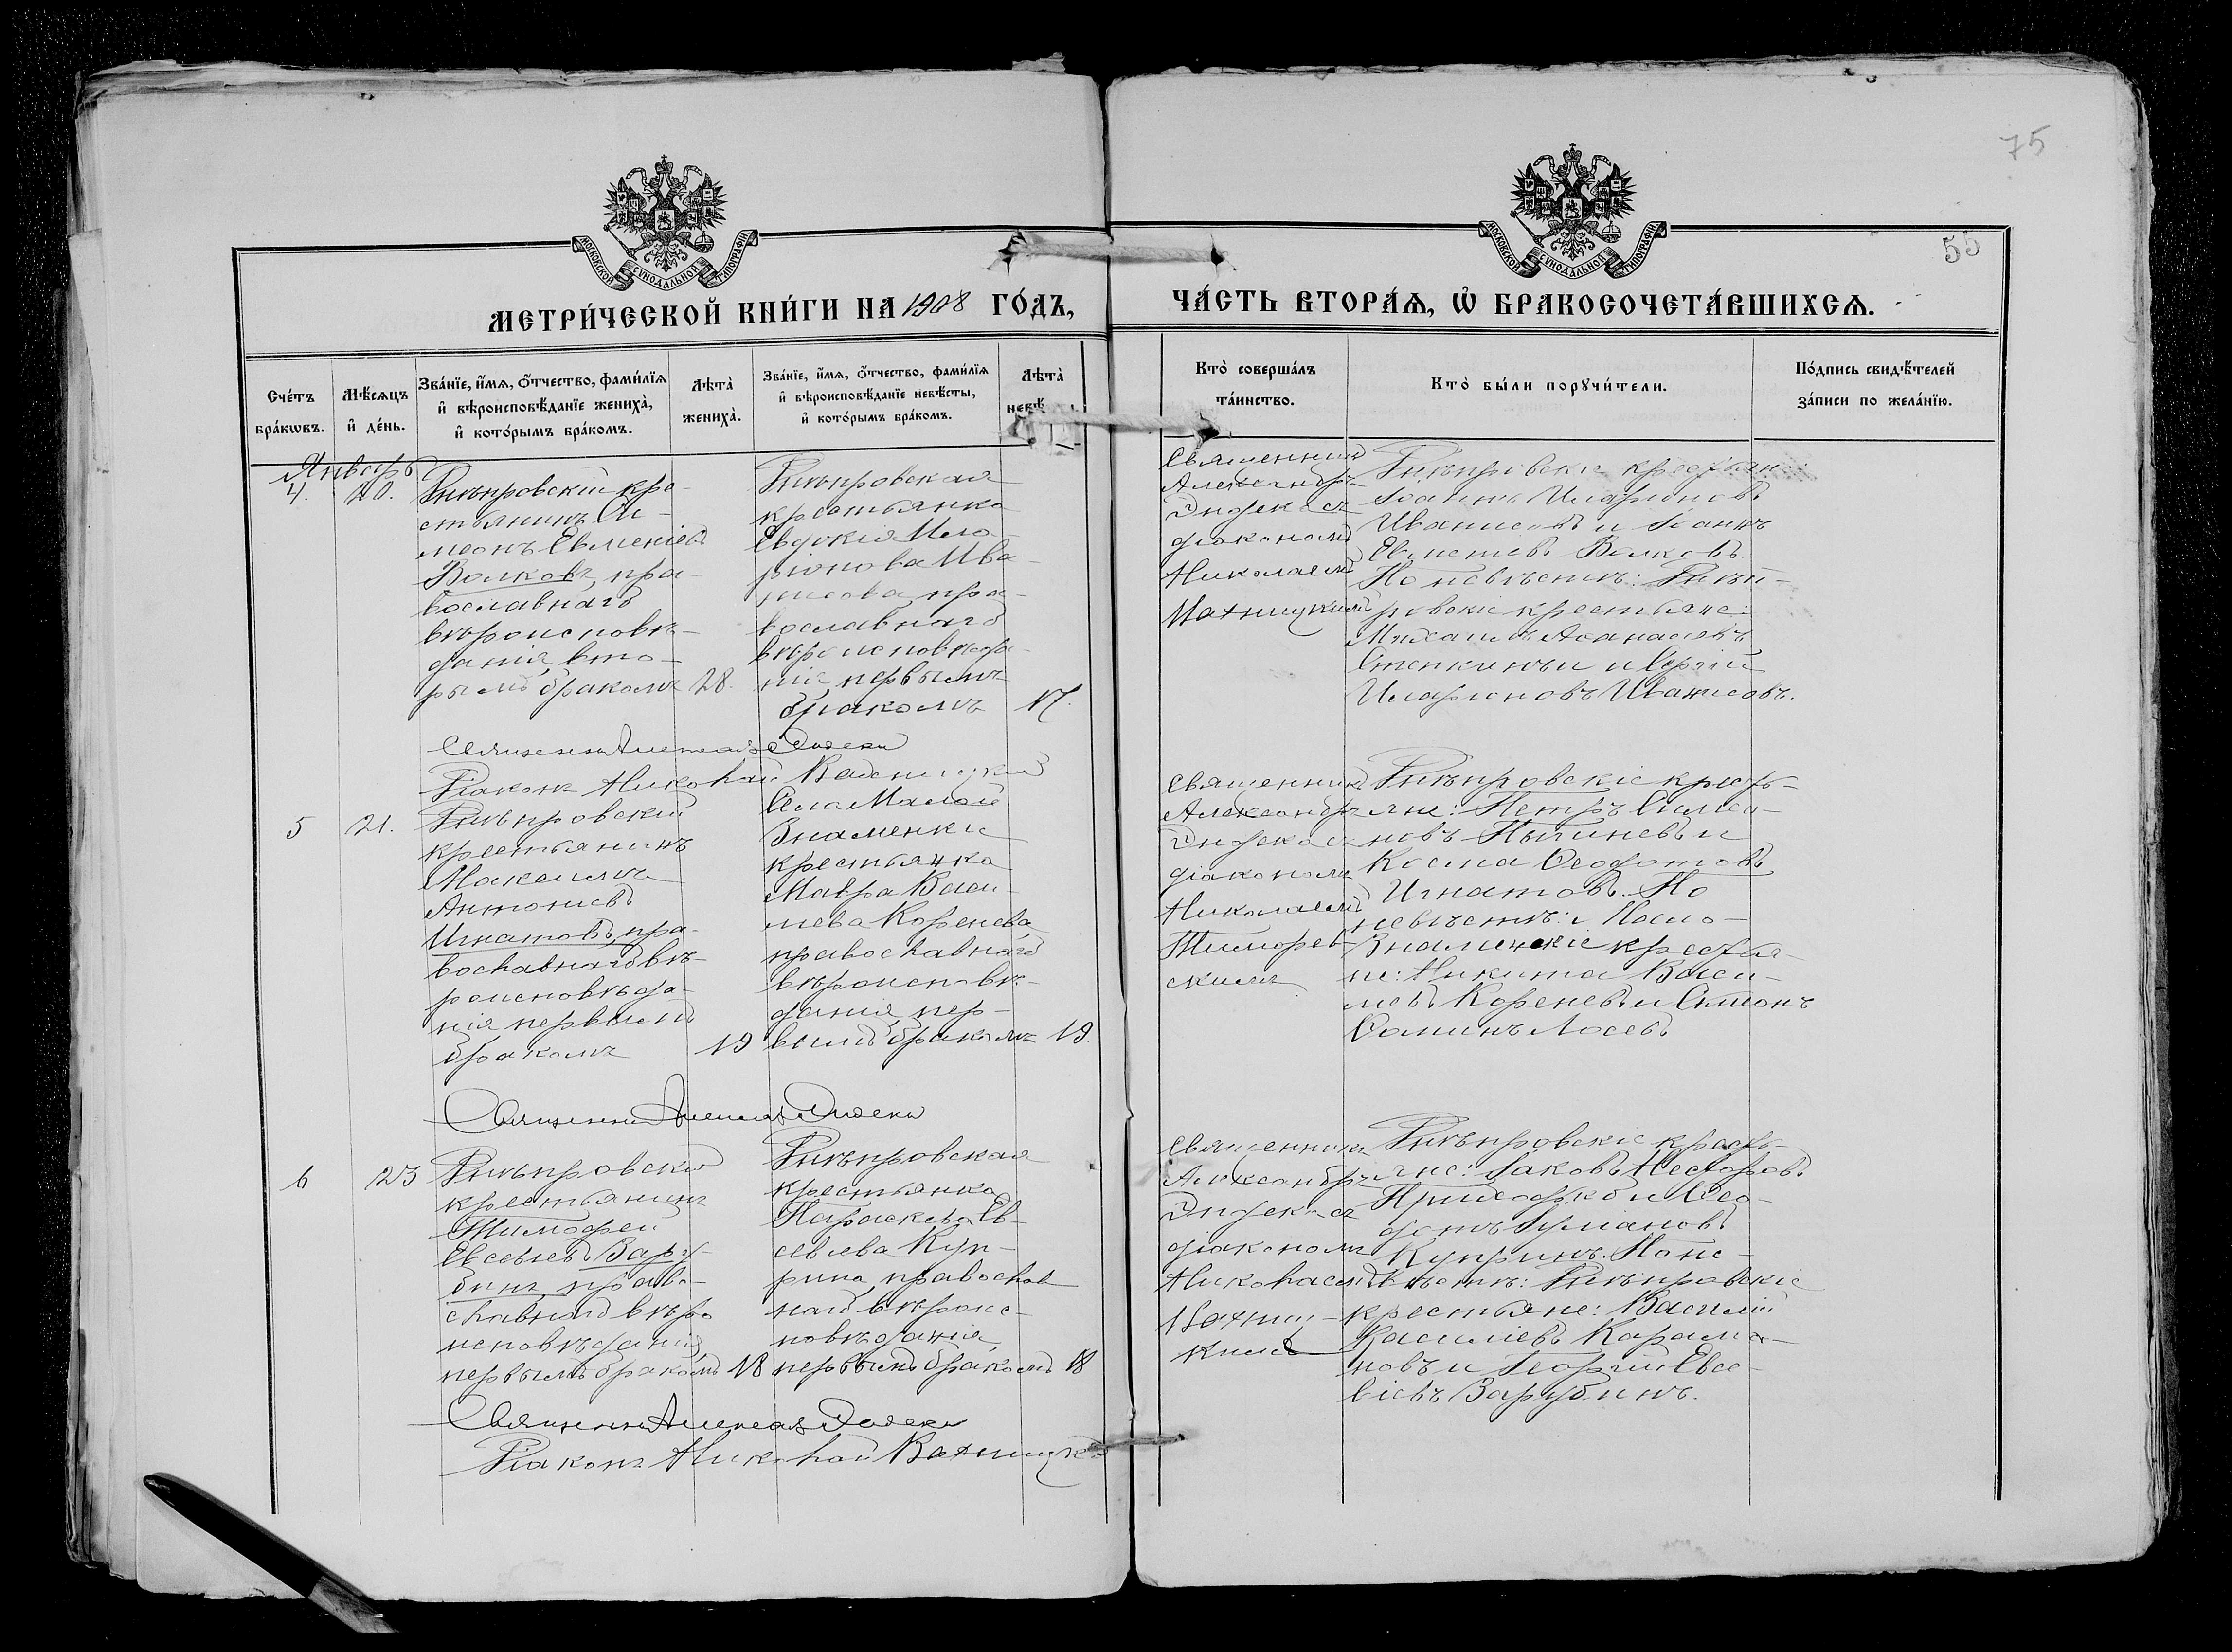 75
55
МОСКОВСКОЙ СѴНОДАЛЬНОЙ ТИПОГРАФІИ
МОСКОВСКОЙ СѴНОДАЛЬНОЙ ТИПОГРАФІИ
МЕТРИ́ЧЕСКОЙ КНИ́ГИ НА 1908 ГО́ДЪ,
ЧА́СТЬ ВТОРА́Ѧ, Ѡ҆ БРАКОСОЧЕТА́ВШИХСѦ.
Сче́тъ
бра́кѡвъ.
Мѣ́сѧцъ
и҆ де́нь.
Зва́нїе, и҆́мѧ, ѻ҆́тчество, фами́лїѧ
и҆ вѣроисповѣ́данїе жениха̀,
и҆ кото́рымъ бра́комъ.
Лѣта̀
жениха̀.
Зва́нїе, и҆́мѧ, ѻ҆́тчество, фами́лїѧ
и҆ вѣроисповѣ́данїе невѣ́сты,
и҆ кото́рымъ бра́комъ.
Лѣта̀
Кто̀ соверша́лъ
та́инство.
Кто̀ бы́ли порꙋчи́тели.
По́дпись свидѣ́телей
за́писи по жела́нїю.
Январь
4.
20.
Днѣпровскій кре-
стьянинъ Си-
меонъ Евменіевъ
Волковъ, пра-
вославнаго
вѣроисповѣ-
данія, вто-
рымъ бракомъ
28.
Днѣпровская
крестьянка
Евдокія Ила-
ріонова Ива-
нисова, пра-
вославнаго
вѣроисповѣда-
нія, первымъ
бракомъ
17.
Священникъ
Александръ
діакономъ
Николаемъ
Днѣпровскіе крестьяне:
Іоаннъ Иларіоновъ
Иванисовъ и Іоаннъ
Волковъ.
По невѣстѣ: Днѣп-
ровскіе крестьяне:
Михаилъ Аѳанасіевъ
и Сергій
Иларіоновъ Иванисовъ.
Священникъ Александръ
Діаконъ Николай
5
21.
Днѣпровскій
крестьянинъ
Максимъ
Антоніевъ
Игнатовъ, пра-
вославнаго вѣ-
роисповѣда-
нія первымъ
бракомъ
19
Села Малой
Знаменки
крестьянка
Мавра Васи-
лева Коренева
православнаго
вѣроисповѣ-
данія пер-
вымъ бракомъ
19.
Священникъ
Александръ
діакономъ
Николаемъ
Днѣпровскіе кресть-
яне: Петръ Симео-
новъ и
Косма Ѳеодотовъ
Игнатовъ. По
невѣстѣ: Мало-
Знаменскіе крестья-
не: Никита Васи-
левъ Кореневъ и Симеонъ
Ѳоминъ Лосевъ
Священникъ Александръ
6
23
Днѣпровскій
крестьянинъ
Тимофей
Евсевіевъ Зару-
бинъ, право-
славнаго вѣро
исповѣданія,
первымъ бракомъ
18
Днѣпровская
крестьянка
Параскева Ев-
севіева Куп-
рина, православ
наго вѣроис-
повѣданія,
первымъ бракомъ
18
Священникъ
Александръ
діакономъ
Николаемъ
Днѣпровскіе кресть-
яне: Іаковъ Несторовъ
Приходько и Ѳео-
дотъ
Купринъ. По не-
вѣстѣ: Днѣпровскіе
крестьяне: Василій
Василіевъ Карама-
новъ и Георгій Евсе-
віевъ Зарубинъ.
Священникъ Александръ
Діаконъ Николай